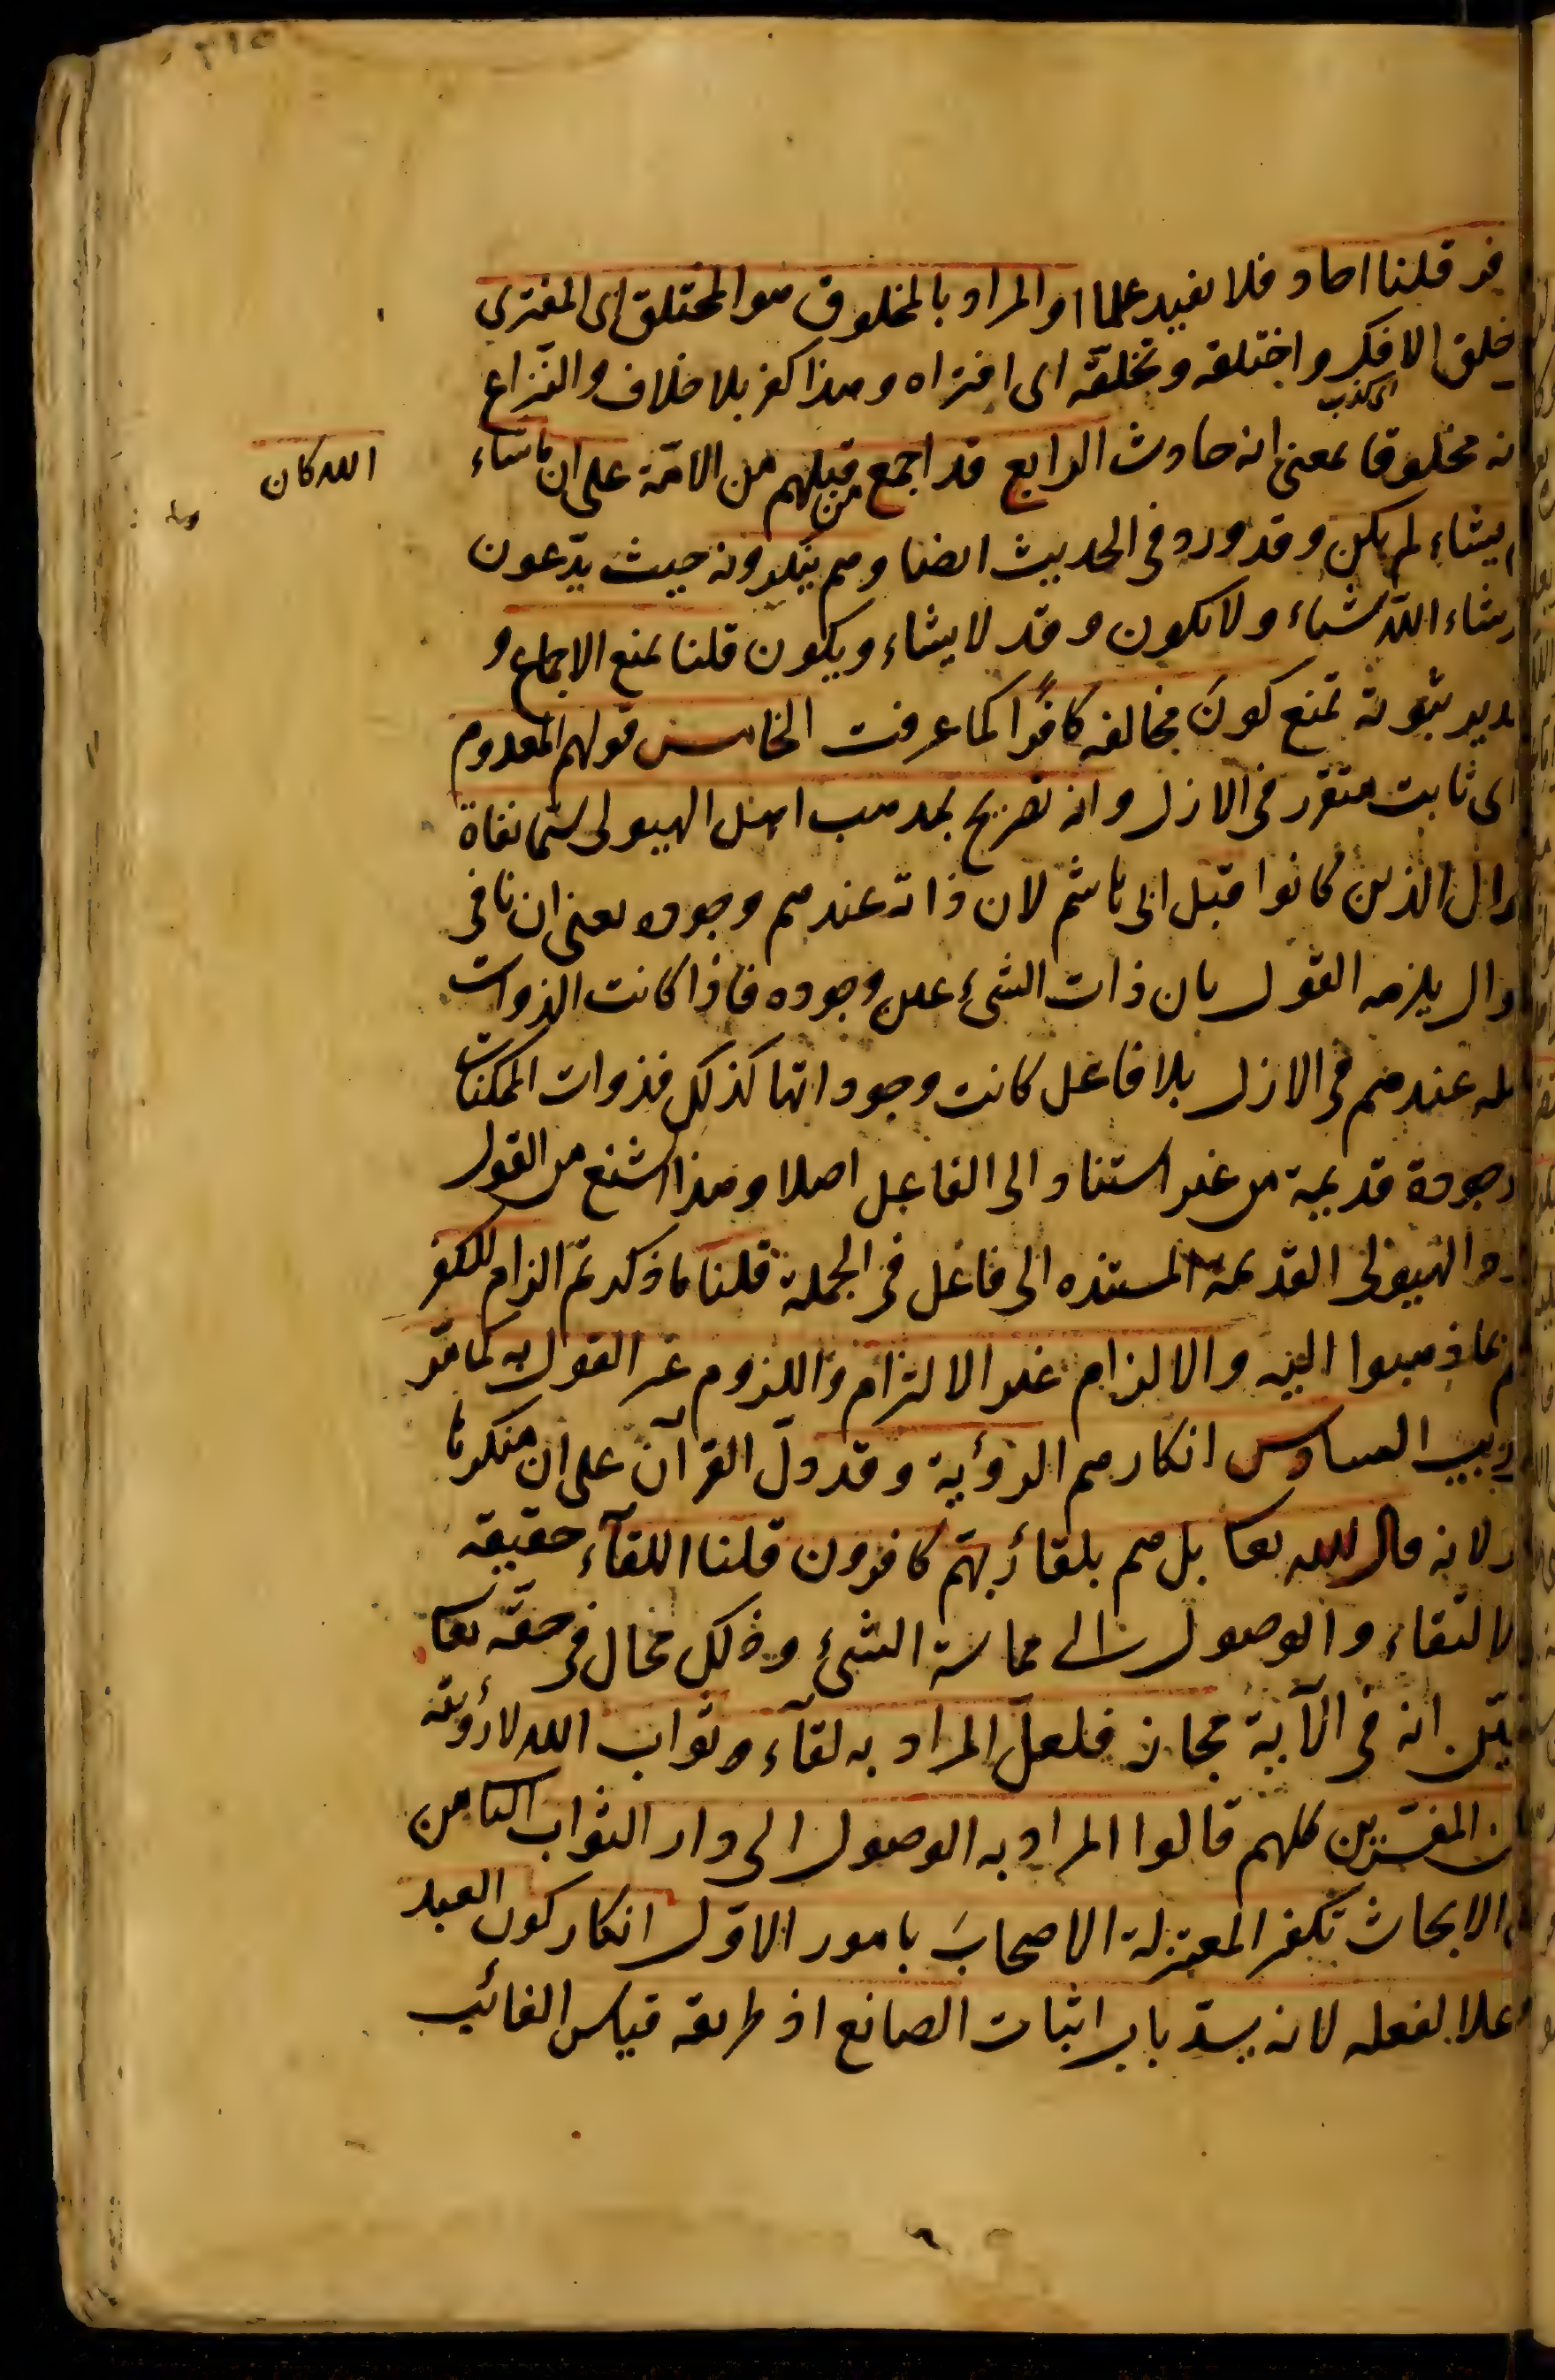 فر قلنا احاد فلا يفيد علما او المراد بالمخلوق هو المختلق اى المفترى
خلق الافك واختلقه وتخلقه اى افتراه وهذا كفر بلا خلاف والنزاع
اى كذب
نه مخلوقا بمعنى انه حادث الرابع قد اجمع من قبلهم من الامّة على ان ماشاء
الله كان
وما
يشاء لم يكن وقد ورد فى الحديث ايضا وهم ينكرونه حيث يدّعون
يشاء الله شياء ولا يكون وقد لا يشاء ويكون قلنا نمنع الاجماع و
دير ثبوته نمنع كونَ مخالفه كافرًا كما عرفت الخامس قولهم المعدوم
اى ثابت متقرر فى الازل وانه تصريح بمذهب اهل الهيولى سيّما نفاة
وال الذين كانوا قبل ابى هاشم لان ذاته عندهم وجوده يعنى ان نافى
وال يلزمه القول بان ذات الشئ عين وجوده فاذا كانت الذوات
عندهم فى الازل بلا فاعل كانت وجوداتها كذلك فذوات الممكنات
وجودة قديمية من غير استناد الى الفاعل اصلا وهذا اشنع من القول
الهيولى القديمة المستنده الى فاعل فى الجملة قلنا ما ذكرتم الزام للكفر
بما ذهبوا اليه والالزام غير الالتزام واللزوم غير القول به كما مرّ
ريب السادس انكارهم الرؤية وقد دلّ القرآن على ان منكرها
لانه قال الله تعا بل هم بلقاء ربهّم كافرون قلنا اللقآء حقيقه
لالتقاء والوصول الى مماسة الشئ وذلك محال فى حقّه تعا
انه فى الآية مجاز فلعلّ المراد به لقآء ثواب الله لا رؤيته
ن المفسّرين كلهم قالوا المراد به الوصول الى دار الثواب الثامن
الابحاث تكفر المعتزلة الاصحابَ بامور الاوّل انكار كون العبد
علا لفعله لانه يسدّ باب اثبات الصانع اذ طريقه قياس الغائب